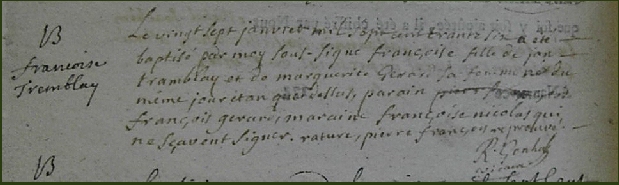 B
francoise
Tremblay
Le vingt sept janvier mil sept cent trante six a été
baptisé par moy sous-signé françoise fille de jan
tramblay et de marguerite Gerard sa femme née du
même jour parain
françois gerard, maraine françoise nicolas qui
ne sçavent signer. rature, pierre françois
B